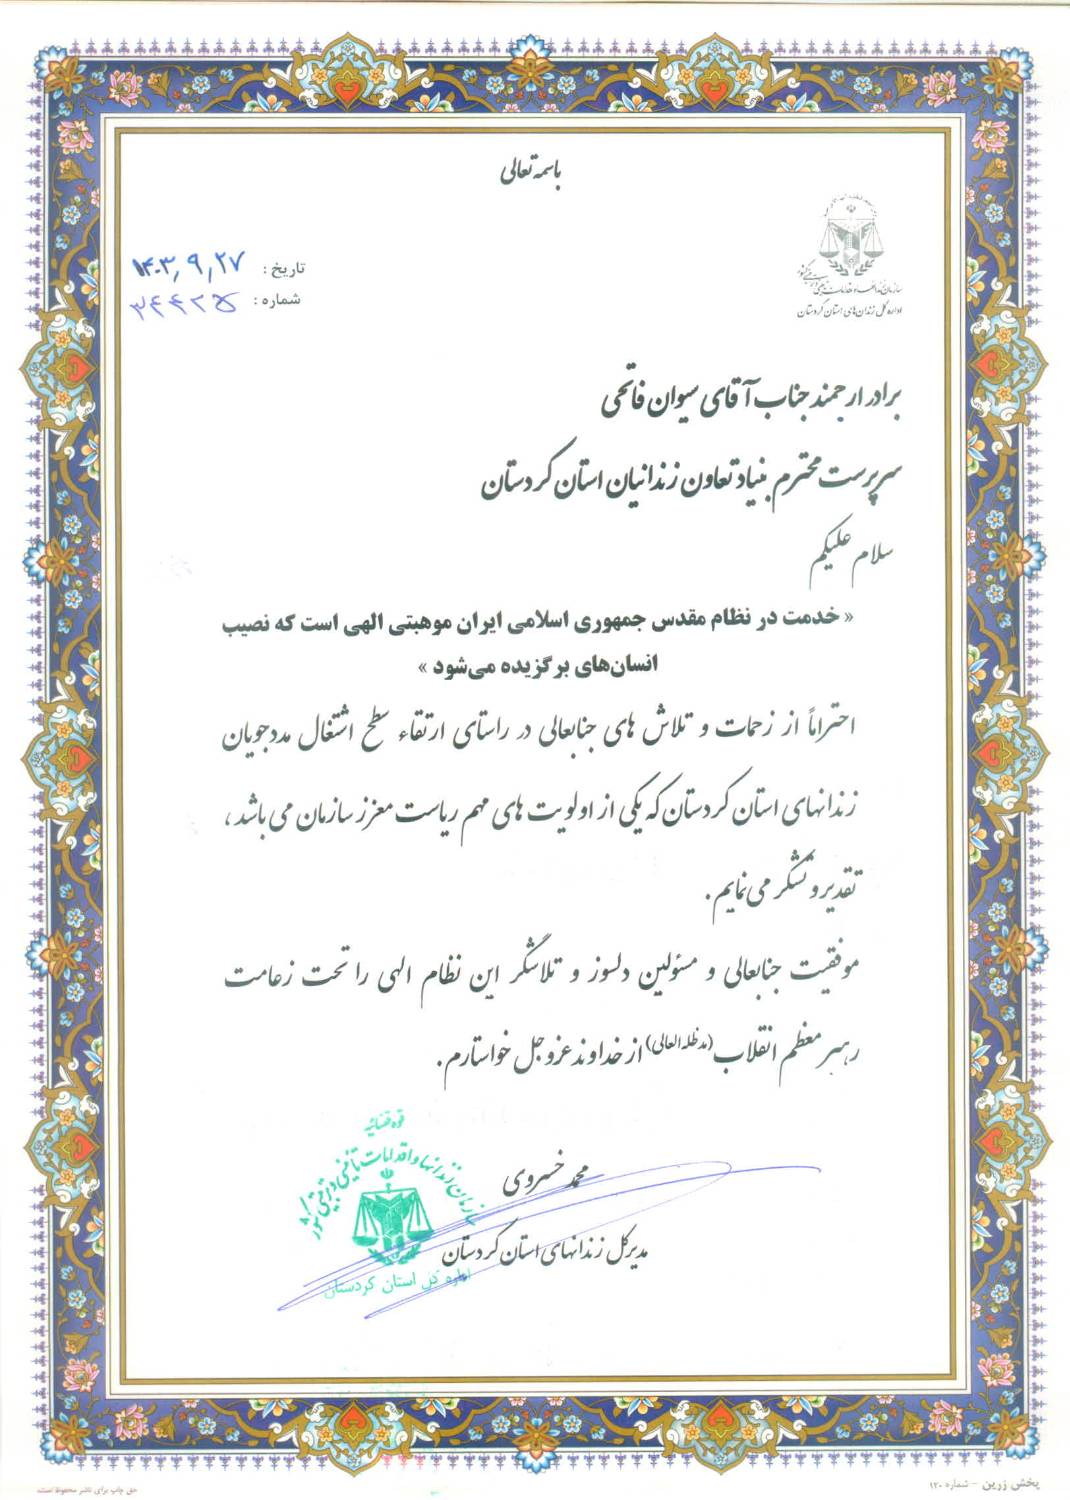 باسمه تعالی
سازمان زندانها و اقدامات تأمینی و تربیتی کشور
اداره کل زندان‌های استان کردستان
تاریخ : ۱۴۰۳,۹,۲۷
شماره : ۳۴۴۲۵
برادر ارجمند جناب آقای سیوان فاتحی
سرپرست محترم بنیاد تعاون زندانیان استان کردستان
سلام علیکم
« خدمت در نظام مقدس جمهوری اسلامی ایران موهبتی الهی است که نصیب
انسان‌های برگزیده می‌شود »
احتراماً از زحمات و تلاش های جنابعالی در راستای ارتقاء سطح اشتغال مددجویان
زندانهای استان کردستان که یکی از اولویت های مهم ریاست معزز سازمان می باشد ،
تقدیر و تشکر می نمایم .
موفقیت جنابعالی و مسئولین دلسوز و تلاشگر این نظام الهی را تحت زعامت
رهبر معظم انقلاب (مدظله العالی) از خداوند عزوجل خواستارم .
محمد خسروی
مدیرکل زندانهای استان کردستان
قوه قضائیه
سازمان زندانها و اقدامات تأمینی و تربیتی کشور
اداره کل استان کردستان
پخش زرین - شماره ۱۲۰
حق چاپ برای ناشر محفوظ است